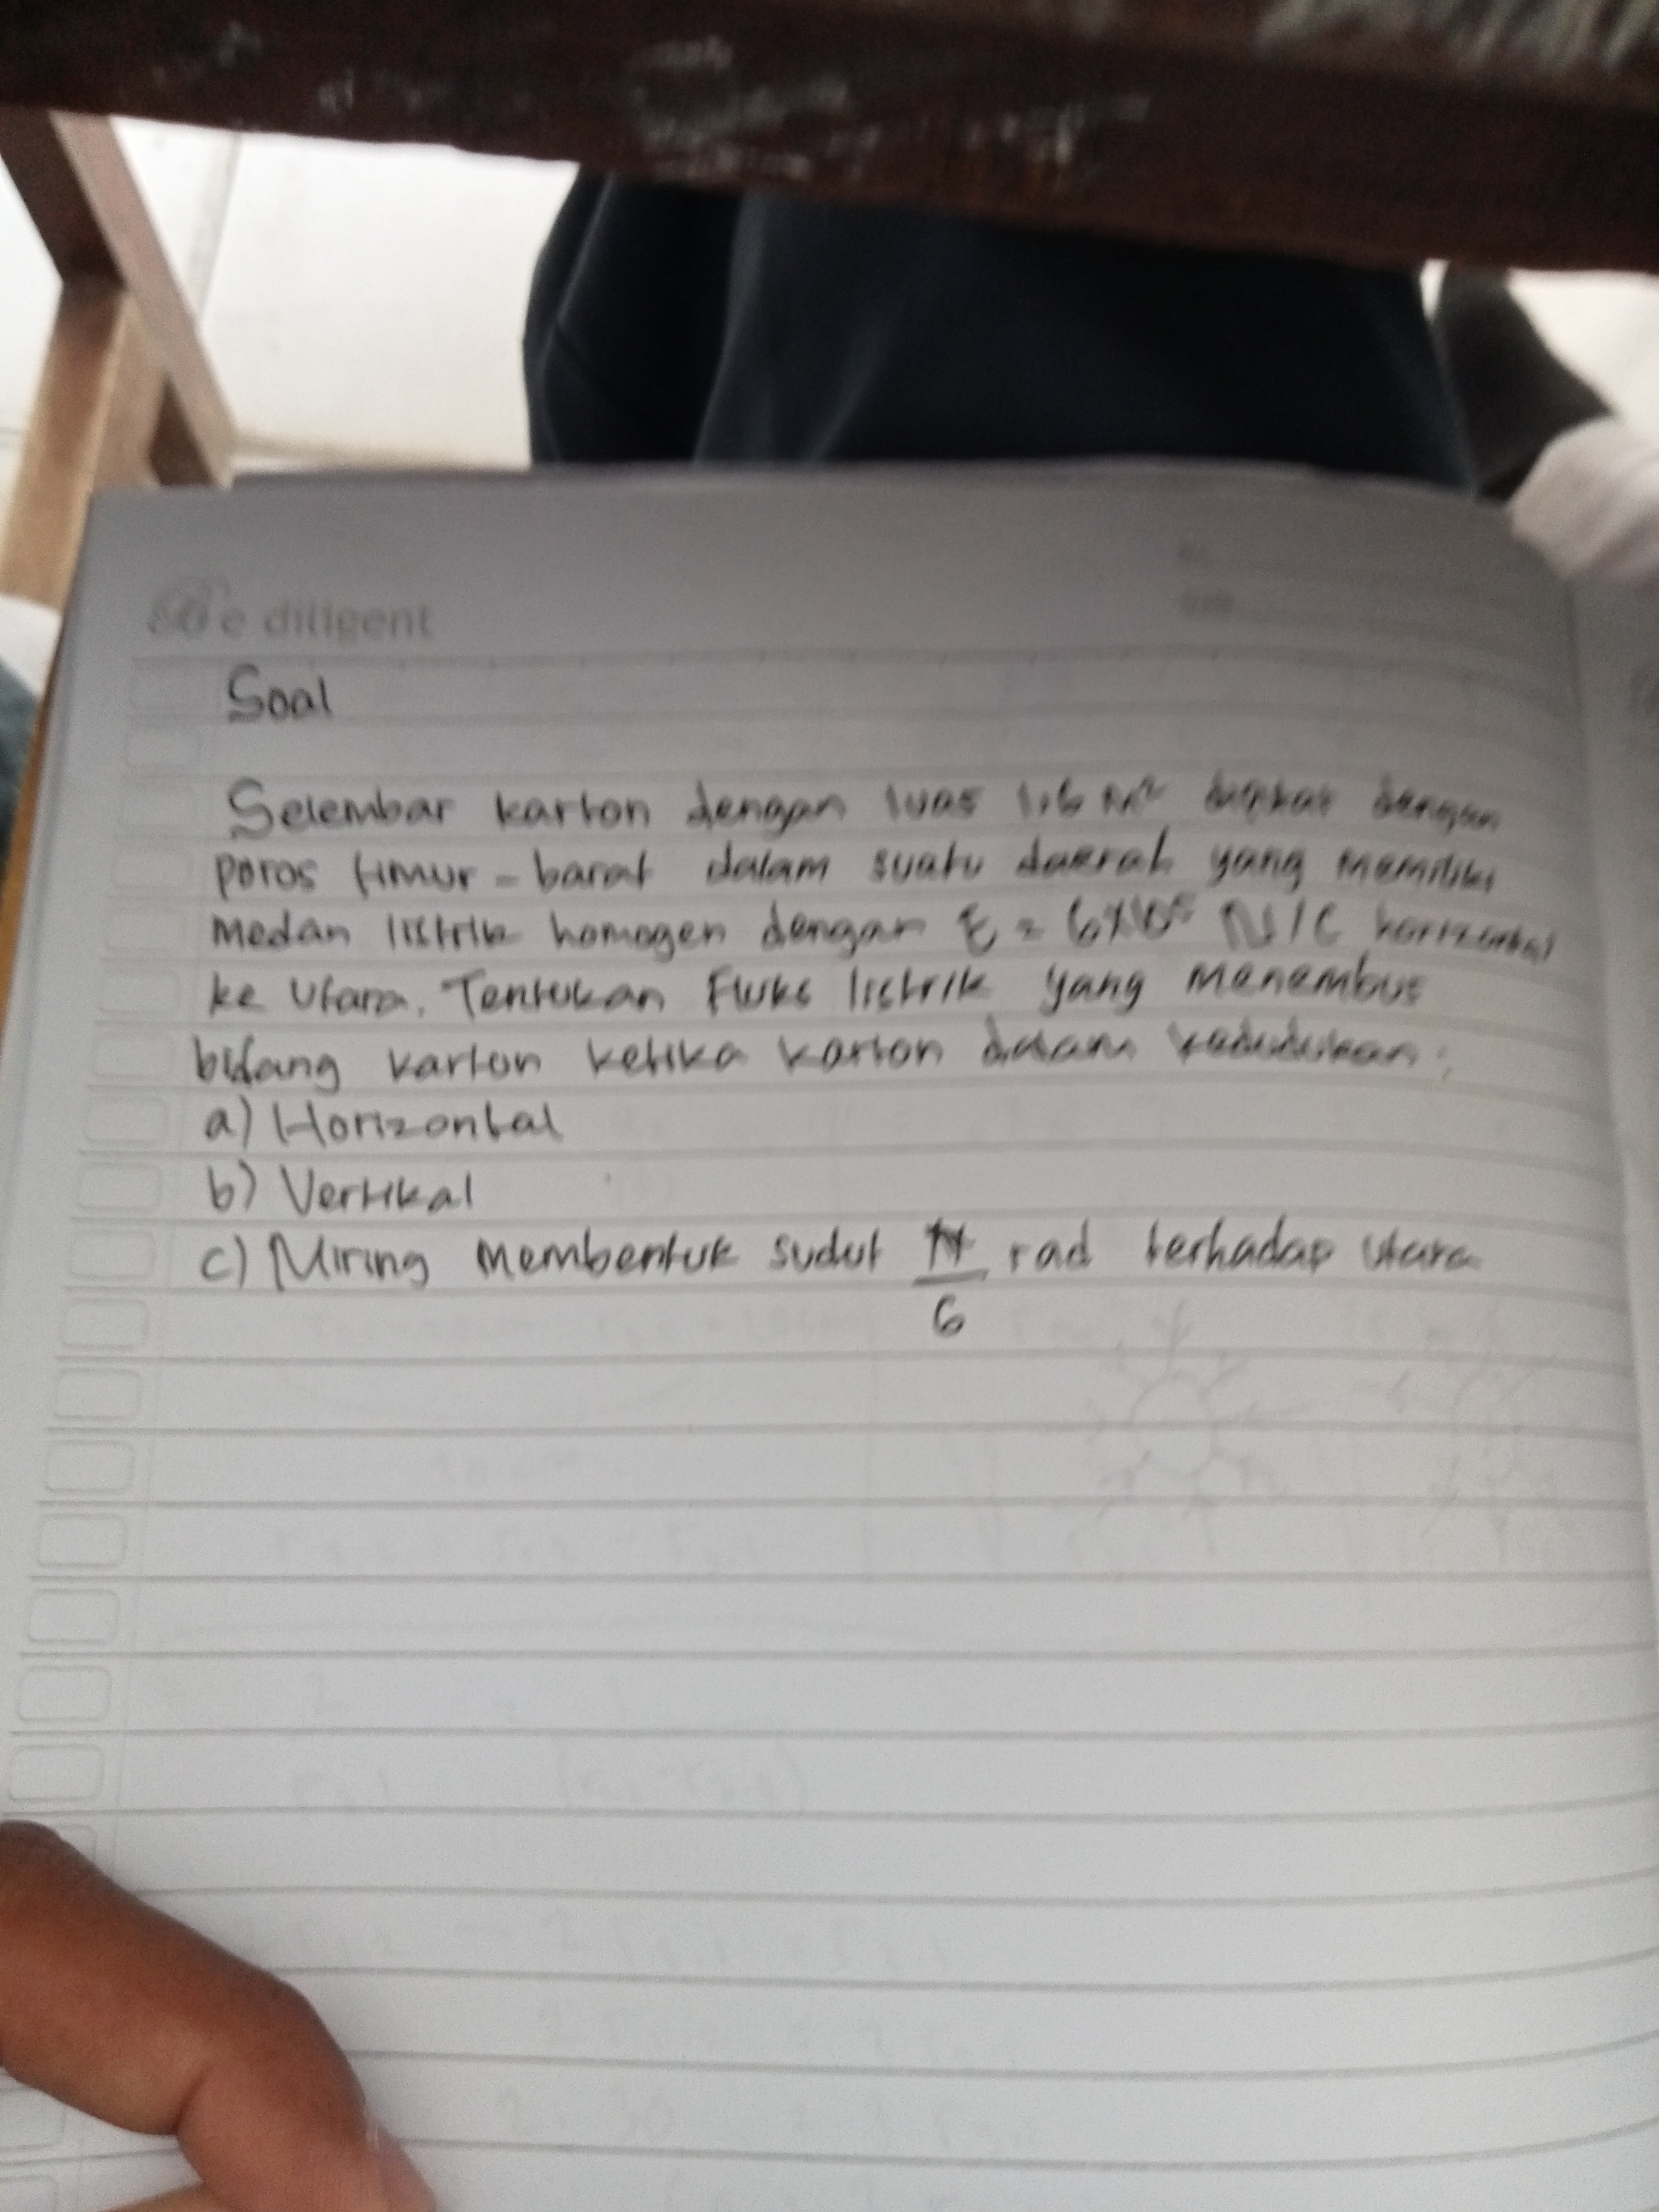 Be diligent
Soal
Selembar karton dengan luas 1,6 m² diputar dengan
poros timur - barat dalam suatu daerah yang memiliki
medan listrik homogen dengan E = 6×10⁵ N/C horizontal
ke Utara. Tentukan Fluks listrik yang menembus
bidang karton ketika karton dalam kedudukan:
a) Horizontal
b) Vertikal
c) Miring membentuk sudut π/6 rad terhadap utara